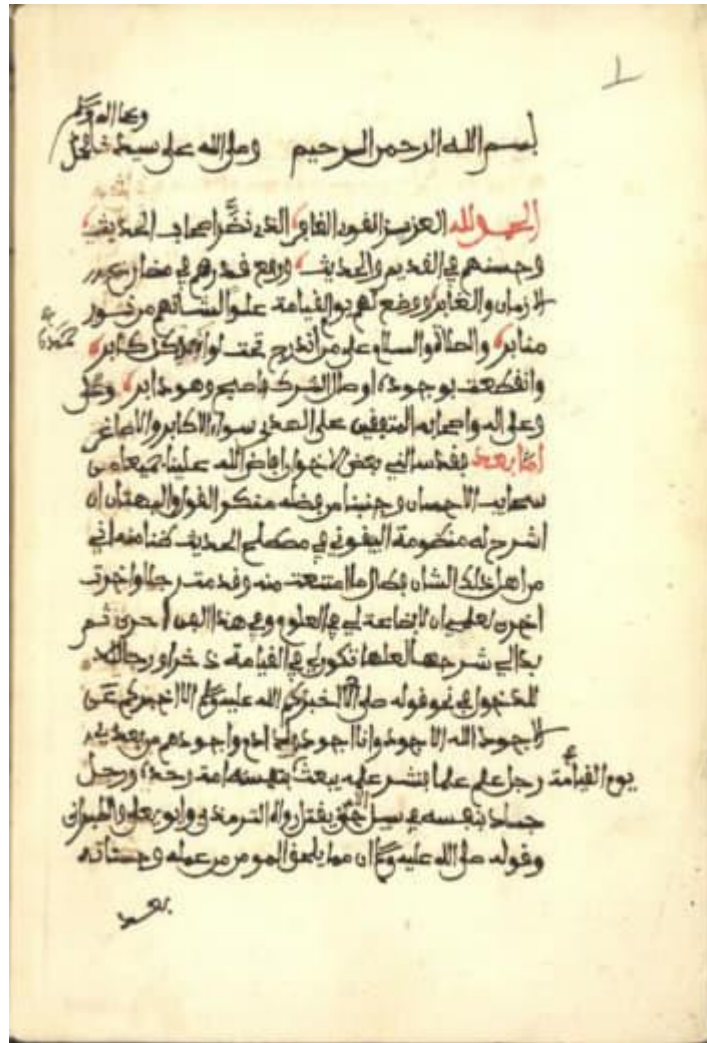 1
وعلى اله وصحبه وسلم
بسم الله الرحمن الرحيم وصلى الله على سيدنا محمد
الحمد لله العزيز القوي الغابر الذي نضر اصحاب الحديث
وحسنهم في القديم والحديث ورفع قدرهم في
الازمان والغابر ووضع لهم يوم القيامة علو الشانهم من نور
منابر والصلاة والسلام على من اندرج تحت لوائه كل كابر
وانقطعت بوجوده اوصال الشرك فاصبح وهو دابر
وعلى اله واصحابه المتبعين على الهدى سواء الاكابر والاصاغر
اما بعد فقد سالني بعض الاخوان افاض الله علينا جميعا من
سحايب الاحسان وجنبنا من فضله منكر القول والبهتان ان
اشرح له منظومة البيقوني في مصطلح الحديث ظنا منه اني
من اهل ذلك الشان فطال ما امتنعت منه وقدمت رجلا واخرت
اخرى لعلمي ان لا بضاعة لي في العلوم وفي هذا الفن احرى ثم
بدا لي شرحها لعلها تكون لي في القيامة ذخرا ورجاء
للدخول في نحو قوله صلى الله عليه وسلم الا اخبركم عن
الاجود الله الاجود وانا اجود ولد ادم واجودهم من بعدي
رجل علم علما فنشر علمه يبعث يوم القيامة بنفسه امة وحده ورجل
جاد بنفسه في سبيل الله حتى يقتل رواه الترمذي وابو يعلى والطبراني
وقوله صلى الله عليه وسلم ان مما يلحق المومن من عمله وحسناته
بعد